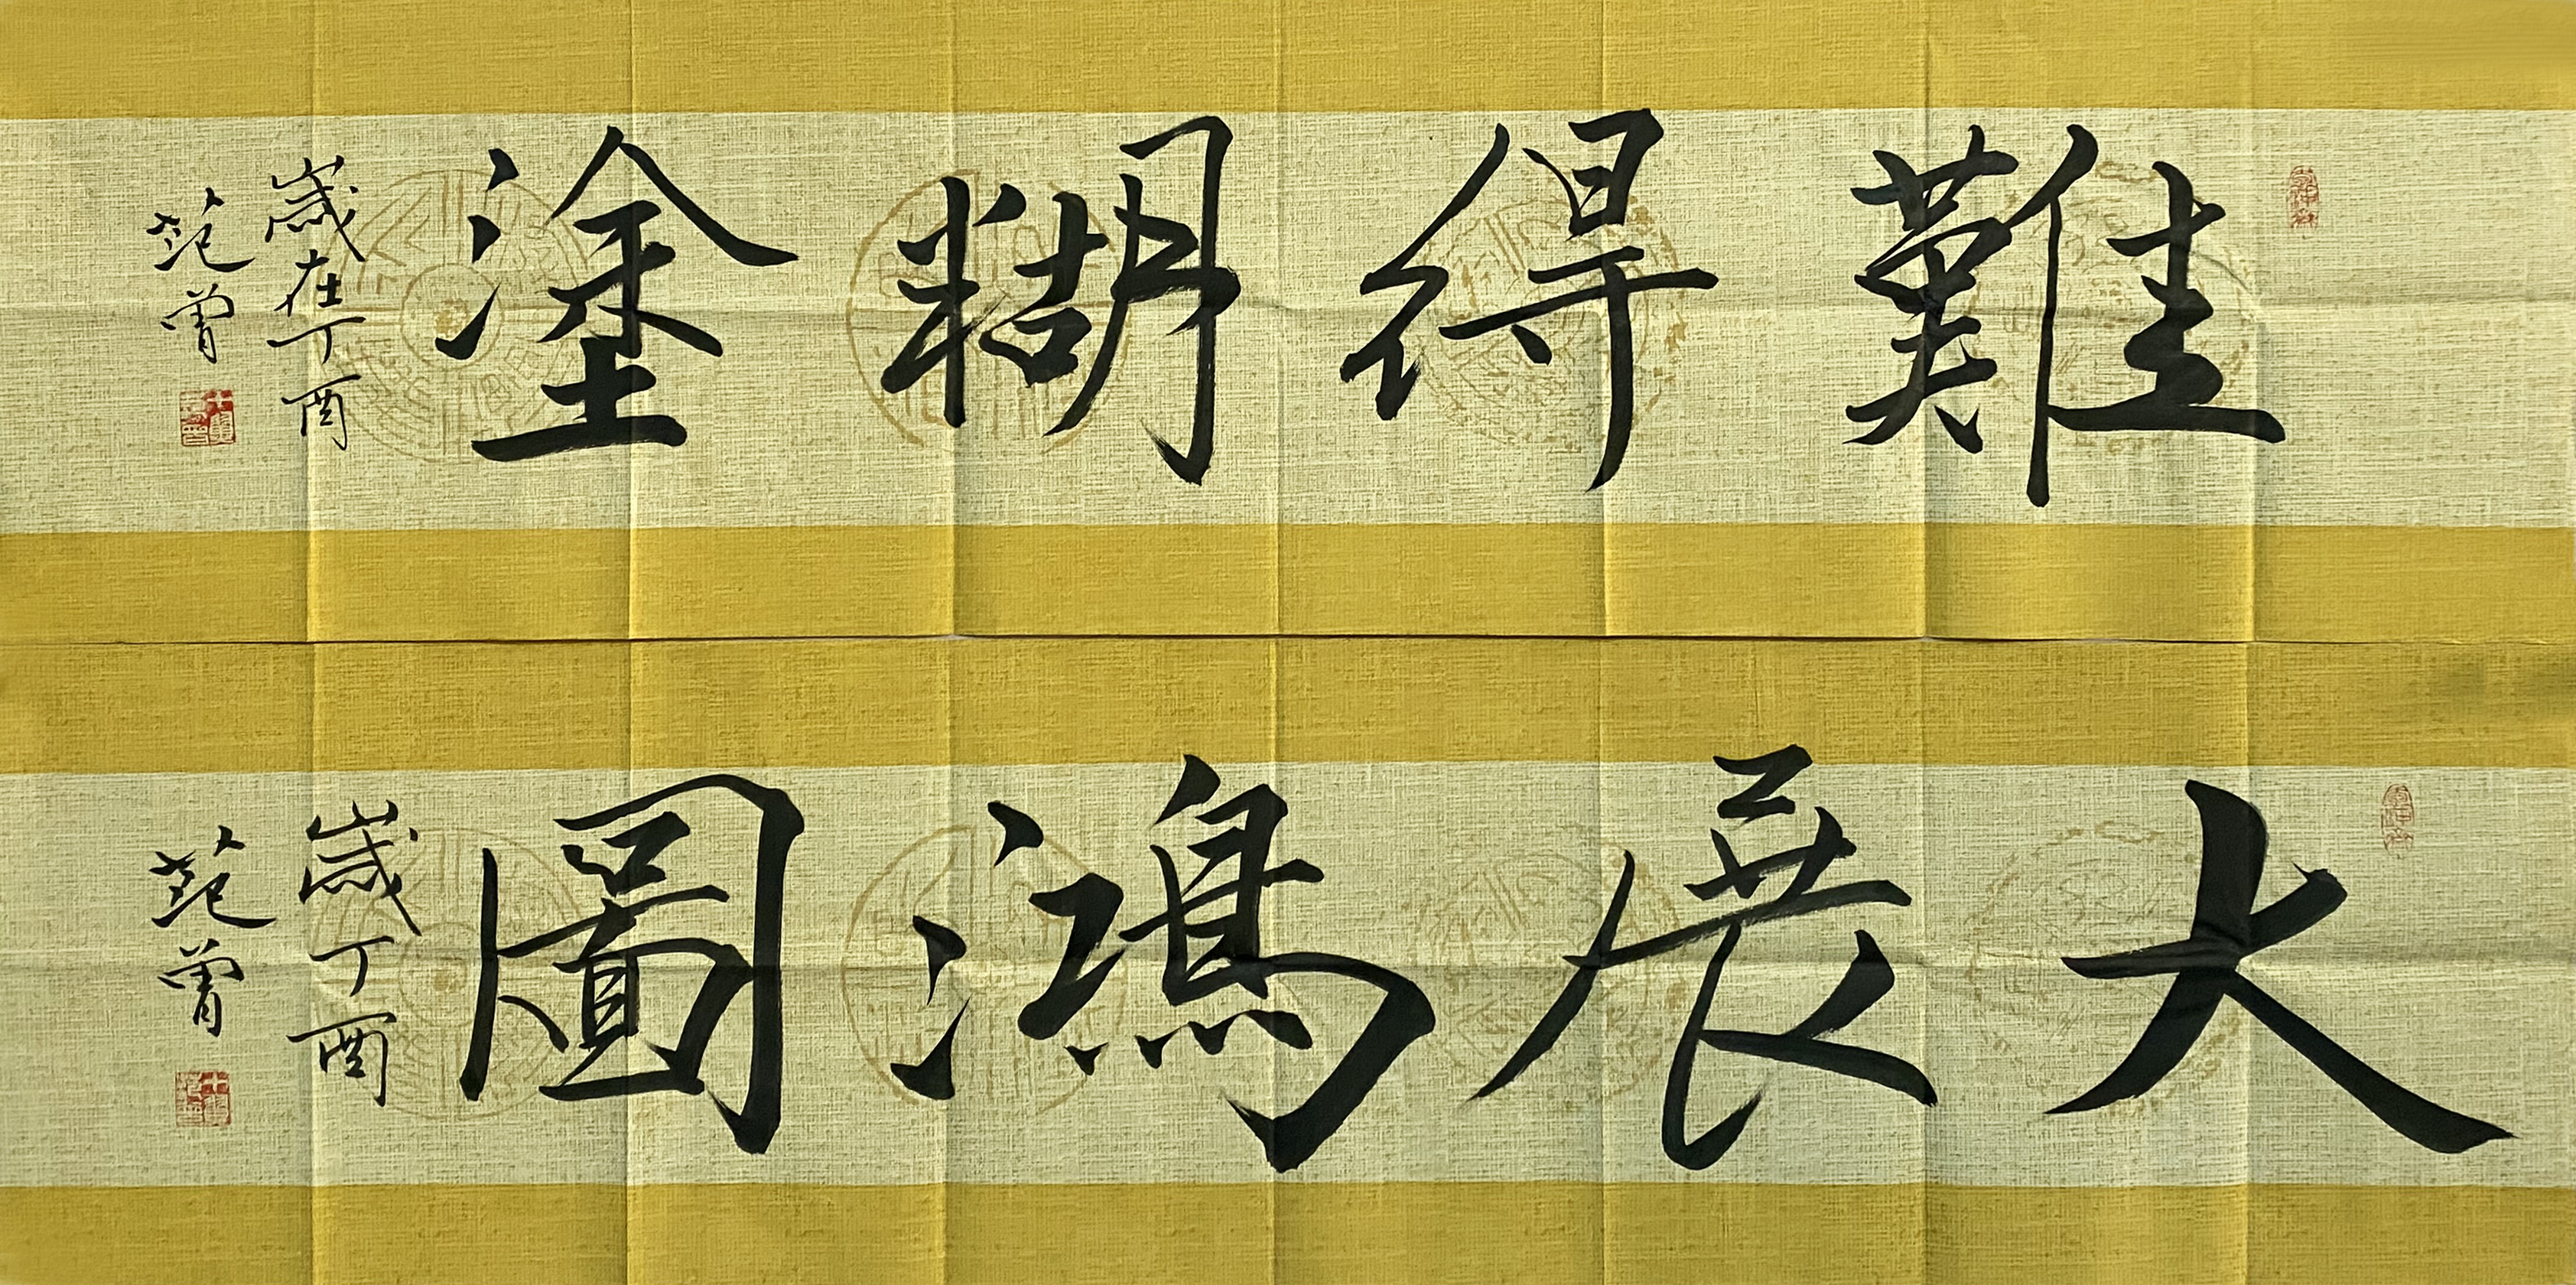 難得糊塗
歲在丁酉
范曾
大展鴻圖
歲丁酉
范曾